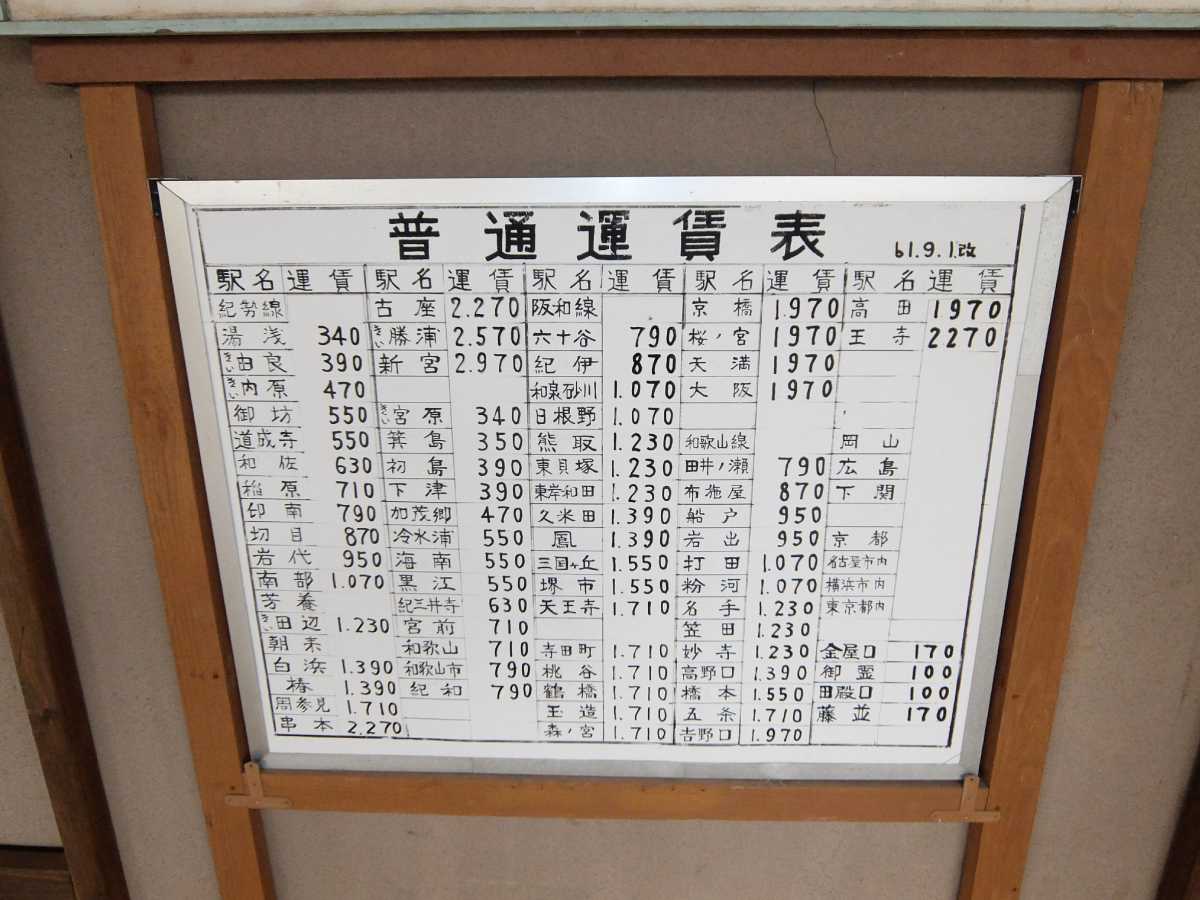 普通運賃表
61.9.1.改
駅名 運賃 駅名 運賃 駅名 運賃 駅名 運賃 駅名 運賃
紀勢線
湯浅 340
きい由良 390
きい内原 470
御坊 550
道成寺 550
和佐 630
稲原 710
印南 790
切目 870
岩代 950
南部 1.070
芳養
きい田辺 1.230
朝来
白浜 1.390
椿 1.390
周参見 1.710
串本 2.270
古座 2.270
きい勝浦 2.570
新宮 2.970
きい宮原 340
箕島 350
初島 390
下津 390
加茂郷 470
冷水浦 550
海南 550
黒江 550
紀三井寺 630
宮前 710
和歌山 710
和歌山市 790
紀和 790
阪和線
六十谷 790
紀伊 870
和泉砂川 1.070
日根野 1.070
熊取 1.230
東貝塚 1.230
東岸和田 1.230
久米田 1.390
鳳 1.390
三国ヶ丘 1.550
堺市 1.550
天王寺 1.710
寺田町 1.710
桃谷 1.710
鶴橋 1.710
玉造 1.710
森ノ宮 1.710
京橋 1.970
桜ノ宮 1970
天満 1970
大阪 1970
和歌山線
田井ノ瀬 790
布施屋 870
船戸 950
岩出 950
打田 1.070
粉河 1.070
名手 1.230
笠田 1.230
妙寺 1.230
高野口 1.390
橋本 1.550
五条 1.710
吉野口 1.970
高田 1970
王寺 2270
岡山
広島
下関
京都
名古屋市内
横浜市内
東京都内
金屋口 170
御霊 100
田殿口 100
藤並 170